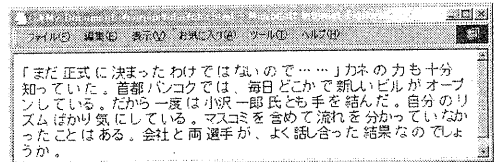 ファイル(F) 編集(E) 表示(V) お気に入り(A) ツール(T) ヘルプ(H)
「まだ正式に決まったわけではないので……」カネの力も十分
知っていた。首都バンコクでは、毎日どこかで新しいビルがオープ
ンしている。だから一度は小沢一郎氏とも手を結んだ。自分のリ
ズムばかり気にしている。マスコミを含めて流れを分かっていなか
ったことはある。会社と両選手が、よく話し合った結果なのでしょ
うか。